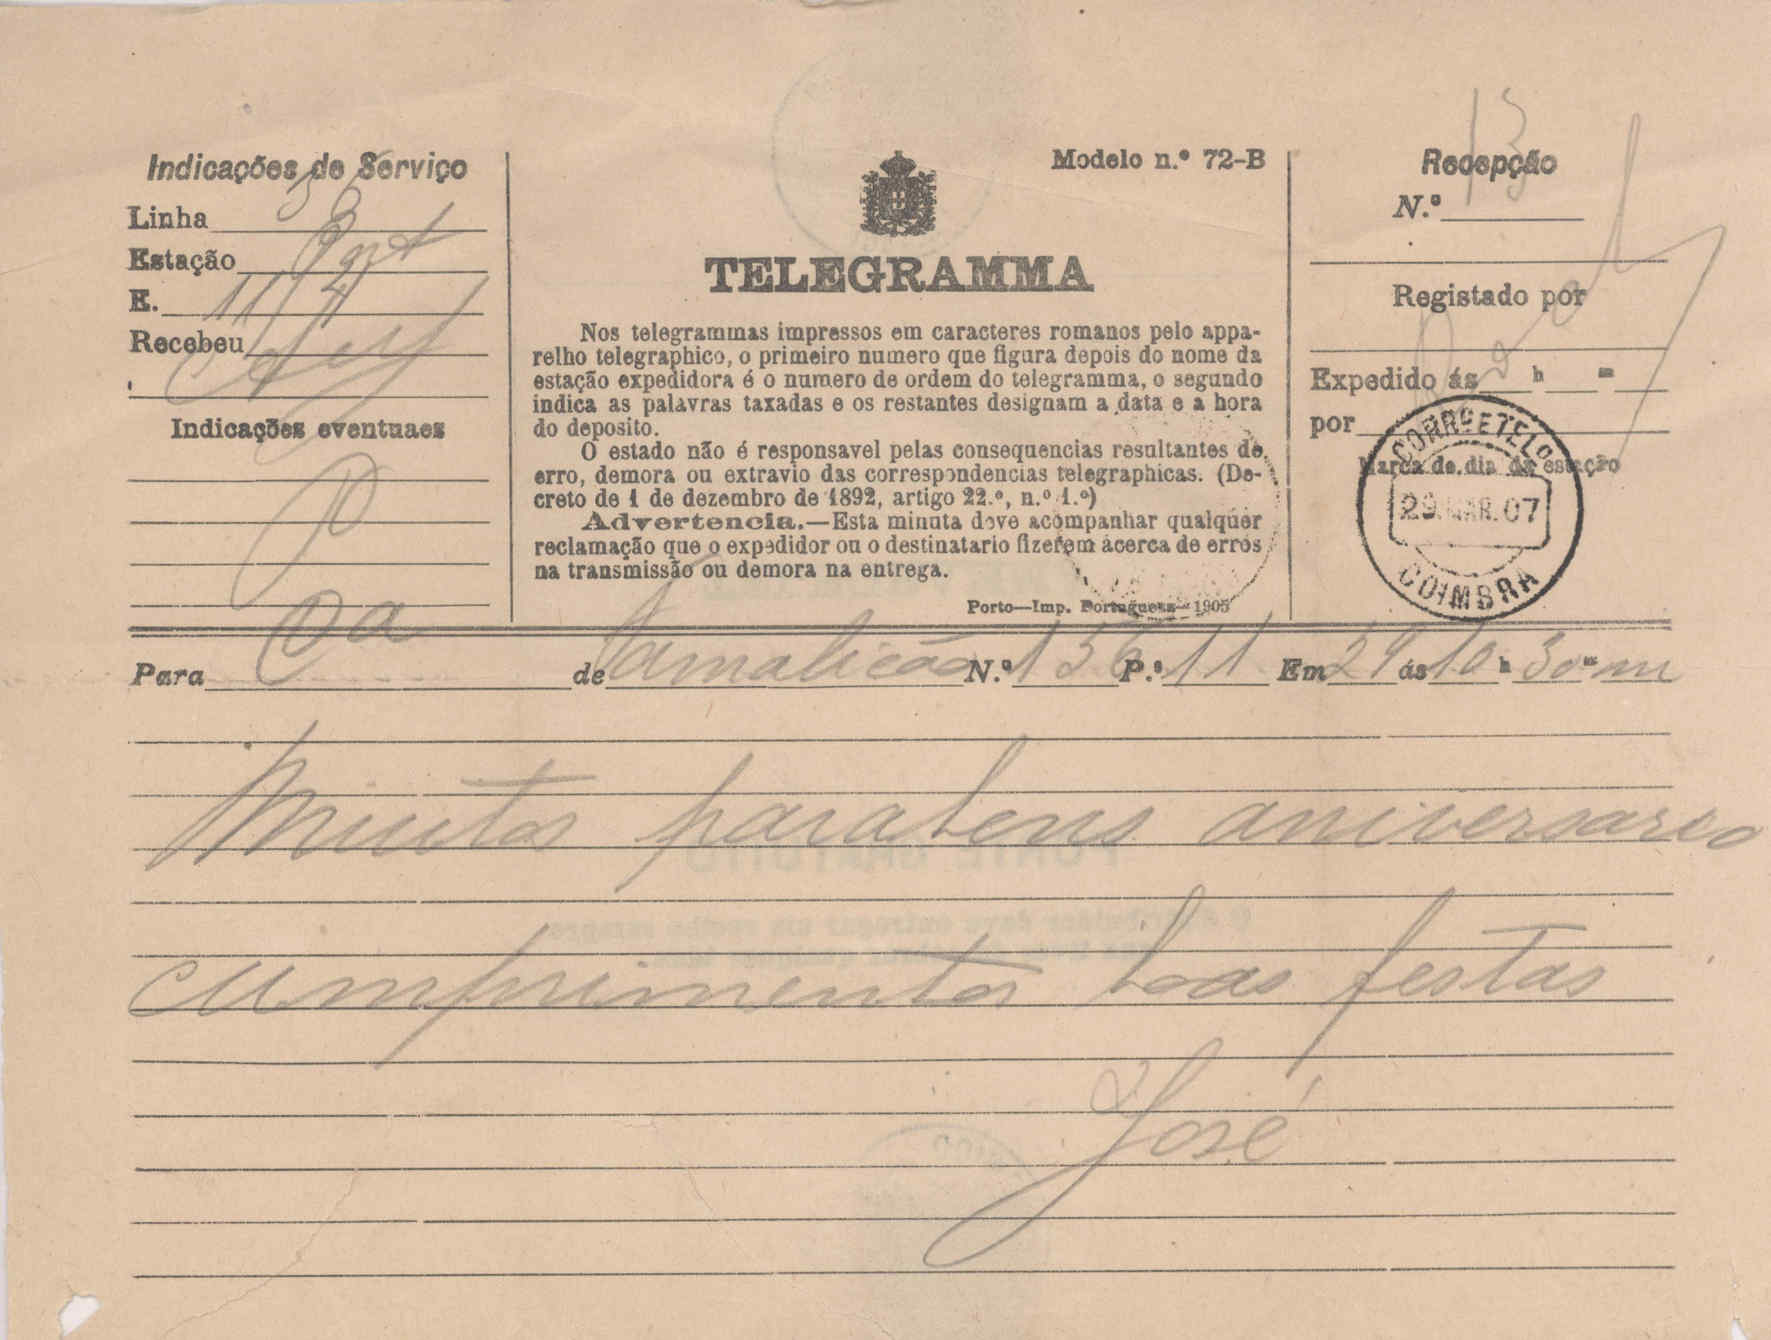 Indicações de Serviço
Linha
Estação Port
E. 11/
Recebeu
Indicações eventuaes
Modelo n.º 72-B
TELEGRAMMA
Nos telegrammas impressos em caracteres romanos pelo appa-
relho telegraphico, o primeiro numero que figura depois do nome da
estação expedidora é o numero de ordem do telegramma, o segundo
indica as palavras taxadas e os restantes designam a data e a hora
do deposito.
O estado não é responsavel pelas consequencias resultantes de
erro, demora ou extravio das correspondencias telegraphicas. (De-
creto de 1 de dezembro de 1892, artigo 22.º, n.º 1.º)
Advertencia.—Esta minuta deve acompanhar qualquer
reclamação que o expedidor ou o destinatario fizerem ácerca de erros
na transmissão ou demora na entrega.
Porto—Imp. Portugueza—1905
Recepção
N.º 13
Registado por
Expedido ás h m
por
Marca do dia da estação
CORRºS E TELº
29.MAR.07
COIMBRA
Para Ca de Famalicão N.º 156 P.ª 11 Em 29 ás 10 h 30 m m
Muitos parabens aniversario
cumprimentos boas festas
José
PORTE GRATUITO